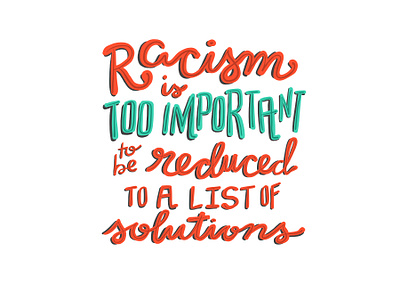 Racism
is
TOO IMPORTANT
to be reduced
TO A LIST OF
solutions